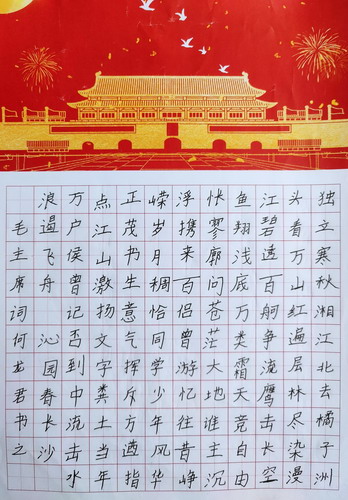 独立寒秋湘江北去橘子洲
头看万山红遍层林尽染漫
江碧透百舸争流鹰击长空
鱼翔浅底万类霜天竞自由
怅寥廓问苍茫大地谁主沉
浮携来百侣曾游忆往昔峥
嵘岁月稠恰同学少年风华
正茂书生意气挥斥方遒指
点江山激扬文字粪土当年
万户侯曾记否到中流击水
浪遏飞舟 沁园春长沙
毛主席词何龙君书之